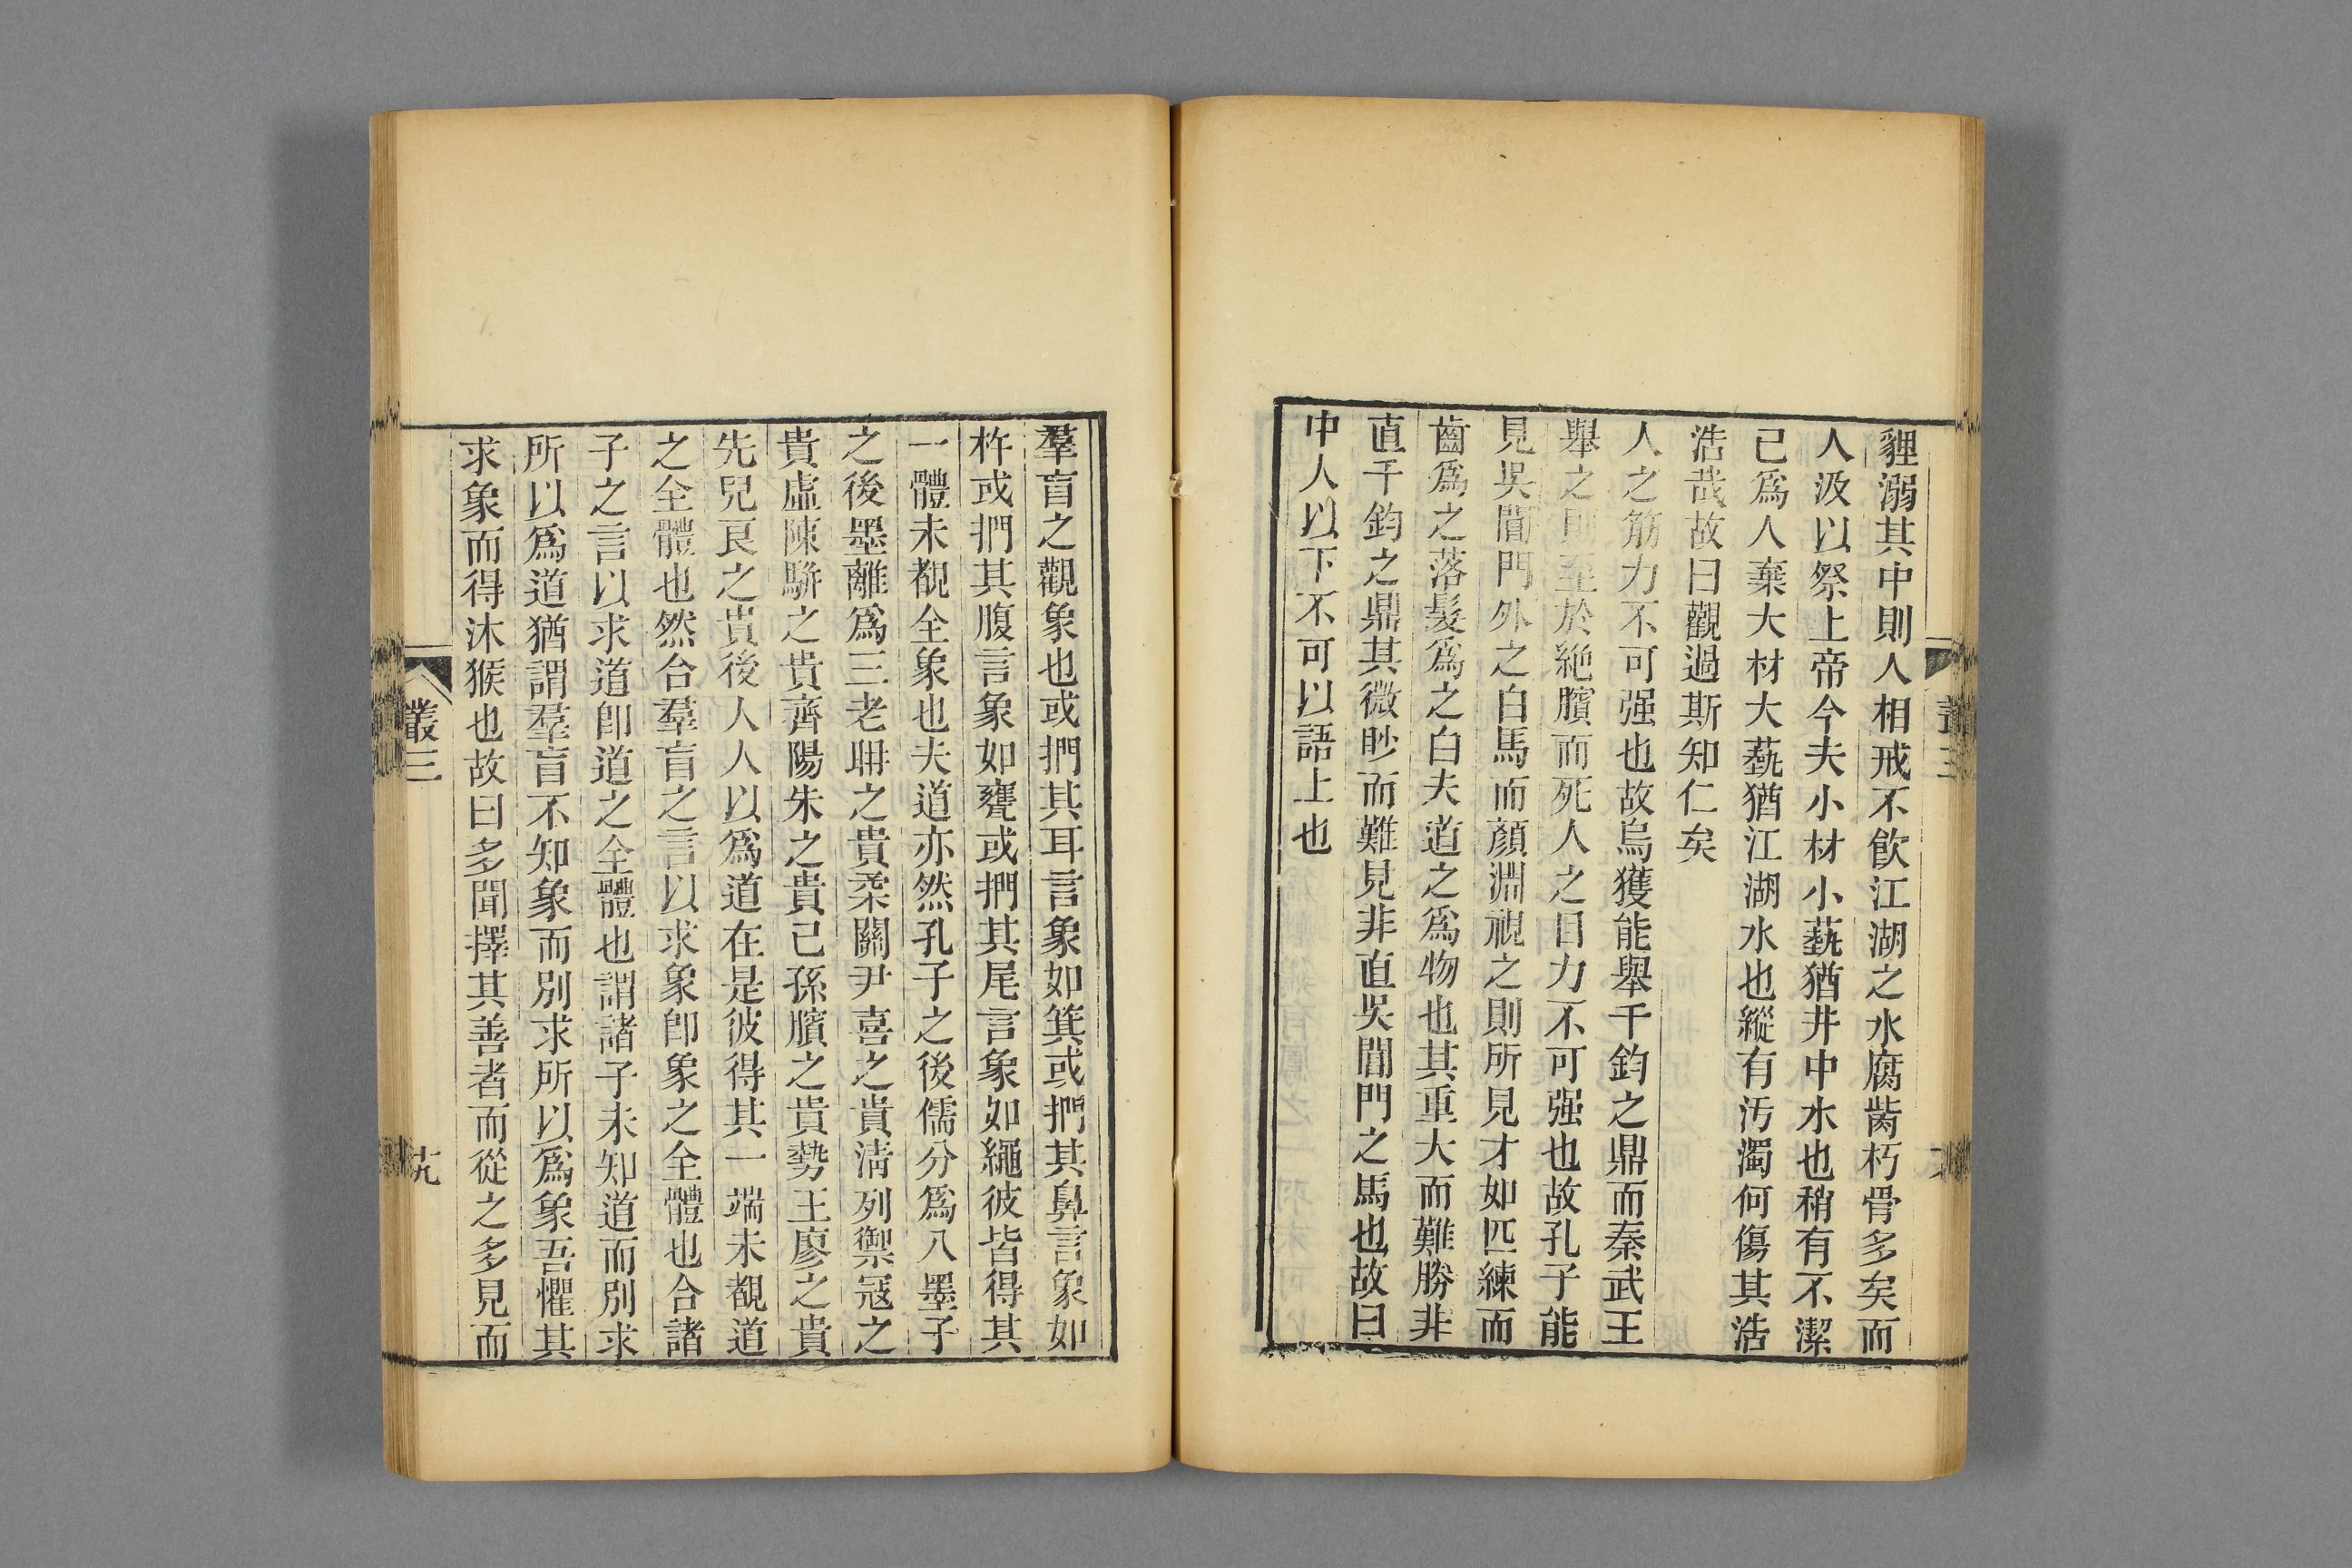 貍溺其中則人相戒不飲江湖之水腐胔朽骨多矣而
人汲以祭上帝今夫小材小蓺猶井中水也稍有不潔
己爲人棄大材大蓺猶江湖水也縱有汚濁何傷其浩
浩哉故曰觀過斯知仁矣
人之筋力不可强也故烏獲能舉千鈞之鼎而秦武王
舉之則至於絶臏而死人之目力不可强也故孔子能
見吳閶門外之白馬而顏淵視之則所見才如匹練而
齒爲之落髮爲之白夫道之爲物也其重大而難勝非
直千鈞之鼎其微眇而難見非直吳閶門之馬也故曰
中人以下不可以語上也
羣盲之觀象也或捫其耳言象如箕或捫其鼻言象如
杵或捫其腹言象如甕或捫其尾言象如繩彼皆得其
一體未覩全象也夫道亦然孔子之後儒分爲八墨子
之後墨離爲三老耼之貴柔關尹喜之貴淸列禦寇之
貴虛陳駢之貴齊陽朱之貴己孫臏之貴勢王廖之貴
先兒良之貴後人人以爲道在是彼得其一端未覩道
之全體也然合羣盲之言以求象卽象之全體也合諸
子之言以求道卽道之全體也謂諸子未知道而別求
所以爲道猶謂羣盲不知象而別求所以爲象吾懼其
求象而得沐猴也故曰多聞擇其善者而從之多見而
叢三